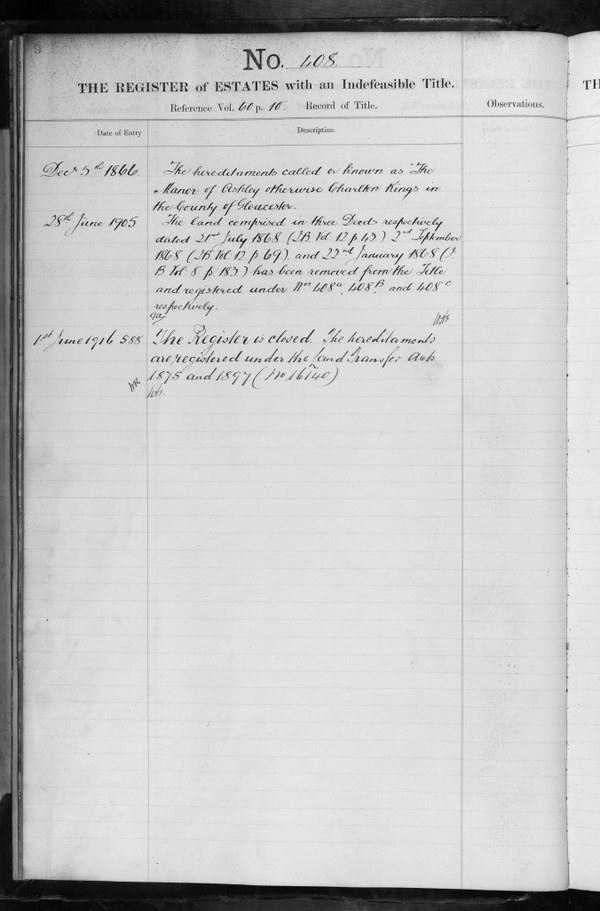 No. 408.
THE REGISTER of ESTATES with an Indefeasible Title.
Reference Vol. 60 p. 10. Record of Title.
Observations.
Date of Entry
Description.
Decr 5th 1866.
The hereditaments called or known as "The
Manor of Ashley otherwise Charlton Kings in
the County of Gloucester.
28th June 1905
The land comprised in three Deeds respectively
dated 21st July 1868 (I B Vol. 12 p 43) 2nd September
1868 (I B Vol. 12 p 69) and 22nd January 1868 (I.
B Vol. 8 p 183) has been removed from the Title
and registered under Nos 408a, 408B and 408c
respectively.
1st June 1916 588
The Register is closed. The hereditaments
are registered under the Land Transfer Acts
1875 and 1897 (No 16740)
TH